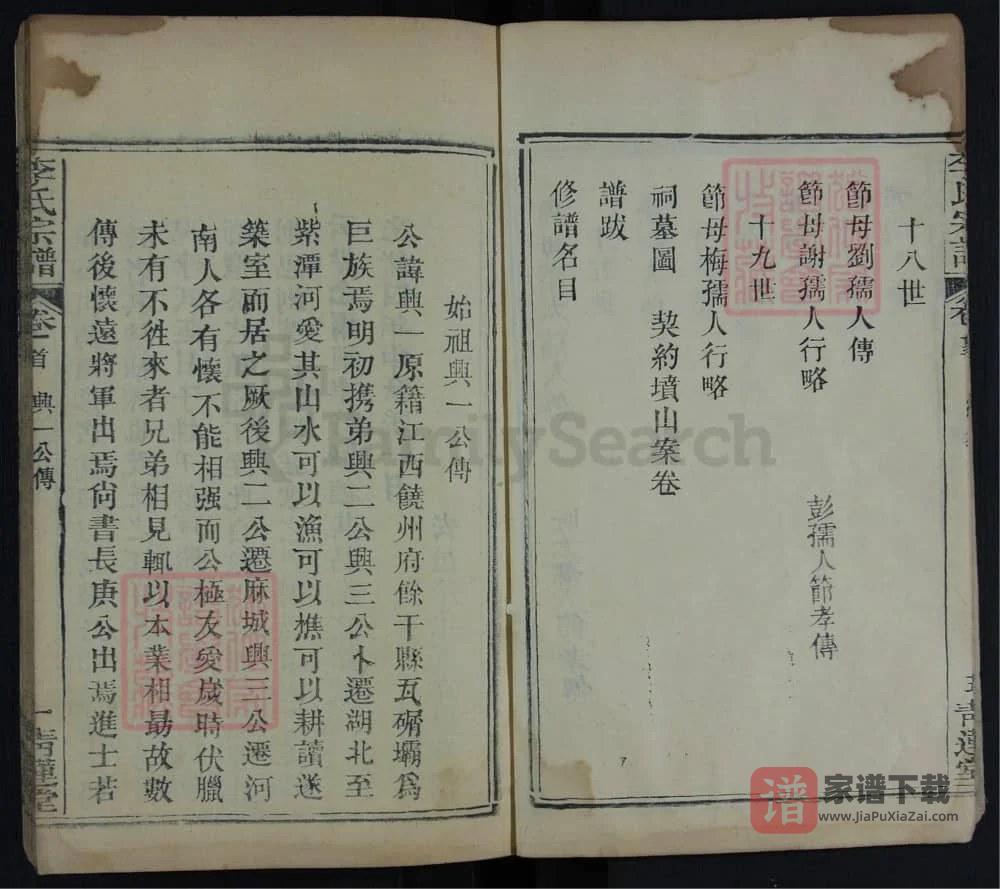 十八世
節母劉孺人傳
節母謝孺人行略
彭孺人節孝傳
十九世
節母梅孺人行略
祠墓圖 契約墳山案卷
譜跋
修譜名目
始祖興一公傳
公諱興一原籍江西饒州府餘干縣瓦礵壩爲
巨族焉明初携弟興二公興三公卜遷湖北至
紫潭河愛其山水可以漁可以樵可以耕讀遂
築室而居之厥後興二公遷麻城興三公遷河
南人各有懷不能相强而公極友愛歲時伏臘
未有不徃來者兄弟相見輒以本業相勗故數
傳後懷遠將軍出焉尚書長庚公出焉進士若
李氏宗譜 卷首 興一公傳 一 青蓮堂
FamilySearch
谱 家谱下载
www.JiaPuXiaZai.com